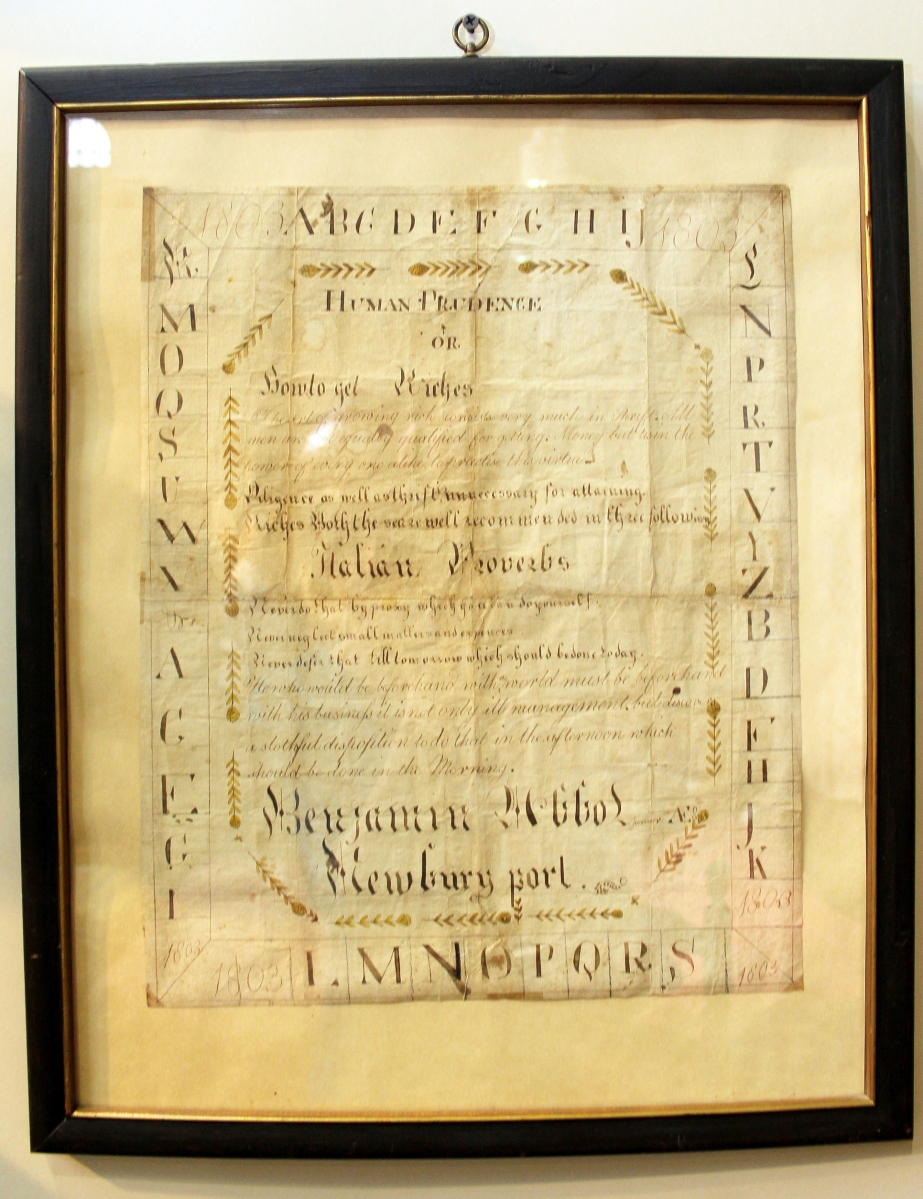 1803 A B C D E F G H IJ 1803
K L
M N
O P
Q R
S T
U V
W Y
X Z
A B
C D
E F
G H
I J
K
HUMAN PRUDENCE
OR
How to get Riches
The art of growing rich consists very much in thrift. All
men are not equally qualified for getting Money but tis in the
power of every one alike to practise this virtue
Diligence as well as thrift is necessary for attaining
Riches Both these are well recommended in three following
Italian Proverbs
Never do that by proxy which you can do yourself.
Never neglect small matters and expences
Never defer that till tomorrow which should be done today.
He who would be beforehand with world must be beforehand
with his business it is not only ill management, but discovers
a slothful disposition to do that in the afternoon which
should be done in the Morning.
Benjamin Abbot Æ
Newbury port.
1803
1803 1803 L M N O P Q R S 1803